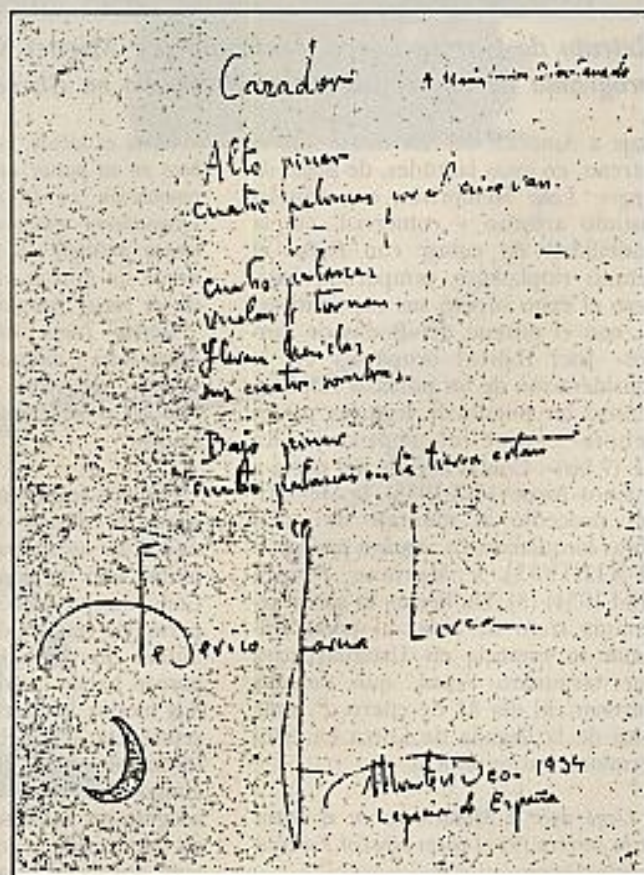 Cazador
A
Alto pinar
cuatro palomas por el aire van.
cuatro palomas
vuelan y tornan
llevan heridas
sus cuatro sombras.
Bajo pinar
cuatro palomas en la tierra están
Federico García Lorca
Montevideo - 1934
de España